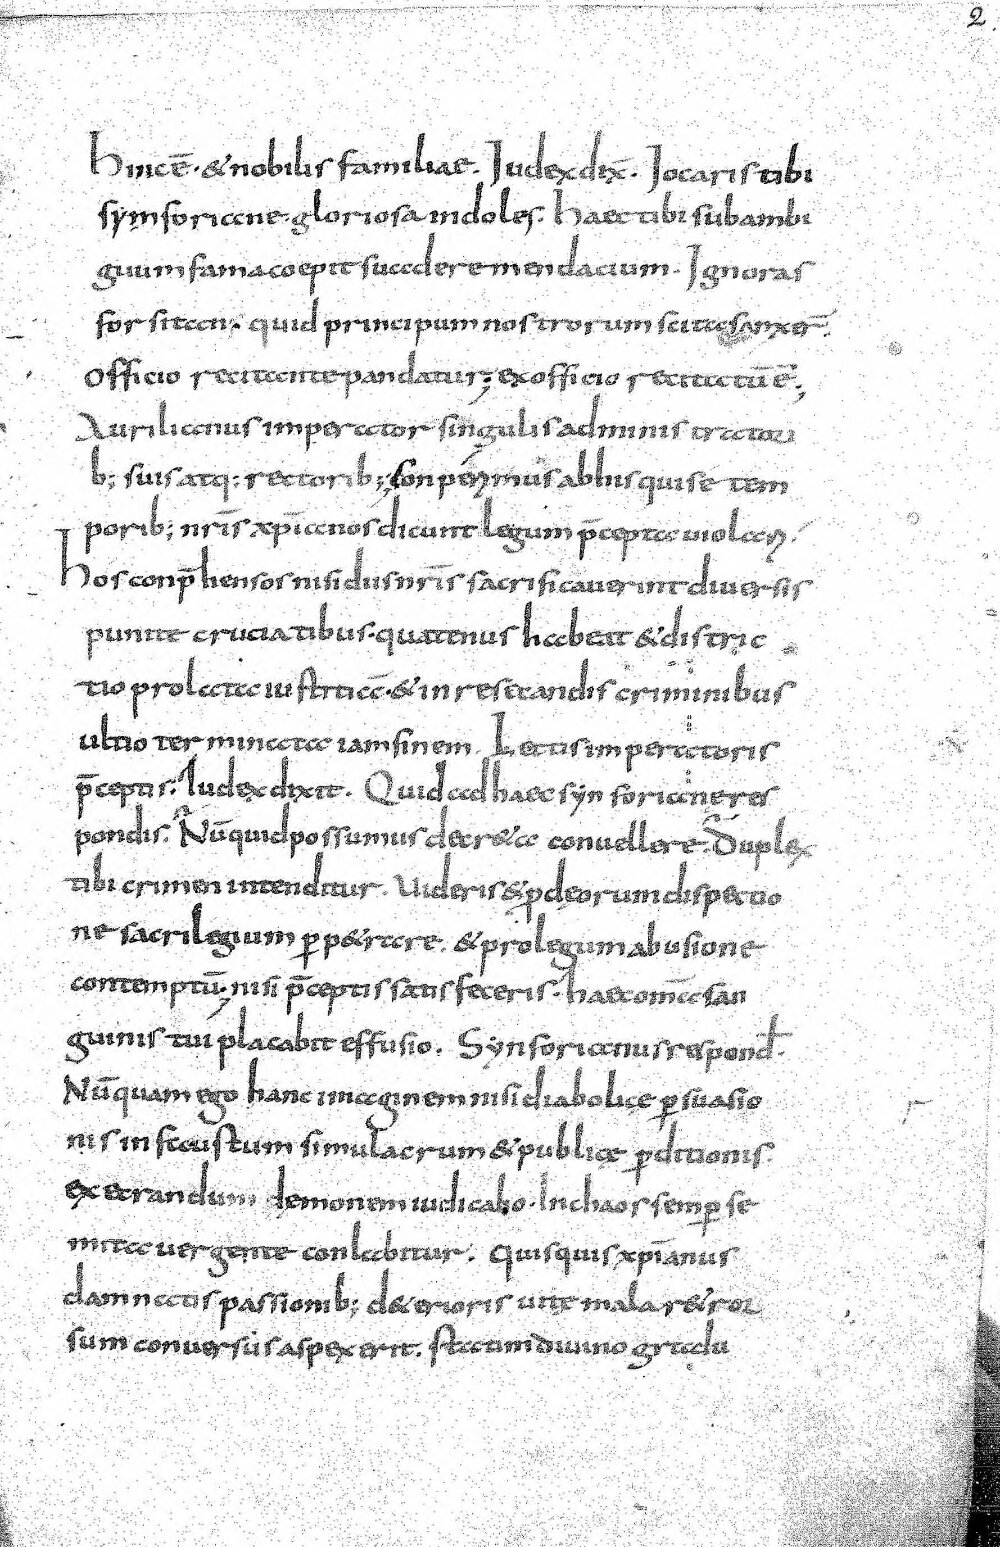 2
Hinc ē. & nobilis familiae. Iudex dix̄. Iocaris tibi
symforiane gloriosa indoles. Haec tibi sub ambi
guum fama coepit succdere mendacium. Ignoras
forsitan. quid principum nostrorum scita sanxer̄.
Officio recitante pandatur; ex officio recitatū ē;
Aurilianus imperator singulis administratori
b; suis atq; rectorib; Conperimus ab his qui se tem
porib; nr̄is xp̄ianos dicunt legum p̄cepta violari.
Hos conp̄hensos nisi diis nr̄is sacrificaverint diversis
punite cruciatibus. quatenus habeat & distric
tio prolata iustitiā. & in resecandis criminibus
ultio terminata iam finem. Lectis imperatoris
p̄ceptis. Iudex dixit. Quid ad haec synforiane res
pondis. Nūquid possumus decr&a convellere. Duplex
tibi crimen intenditur. Uideris & p̱ deorum dispectio
ne sacrilegium p̱p&rare. & pro legum abusione
contemptū; nisi p̄ceptis satis feceris. haec om̄a san
guinis tui placabit effusio. Synforianus respond̄.
Nūquam ego hanc imaginem nisi diabolicę p̱suasio
nis infaustum simulacrum & publicę p̱ditionis
execrandum demonem iudicabo. In chaos semp̱ se
mita vergente conlabitur. Quisquis xp̄ianus
damnatis passionib; d&erioris vitę mala r&ror
sum conversus aspexerit. statim divino gradu